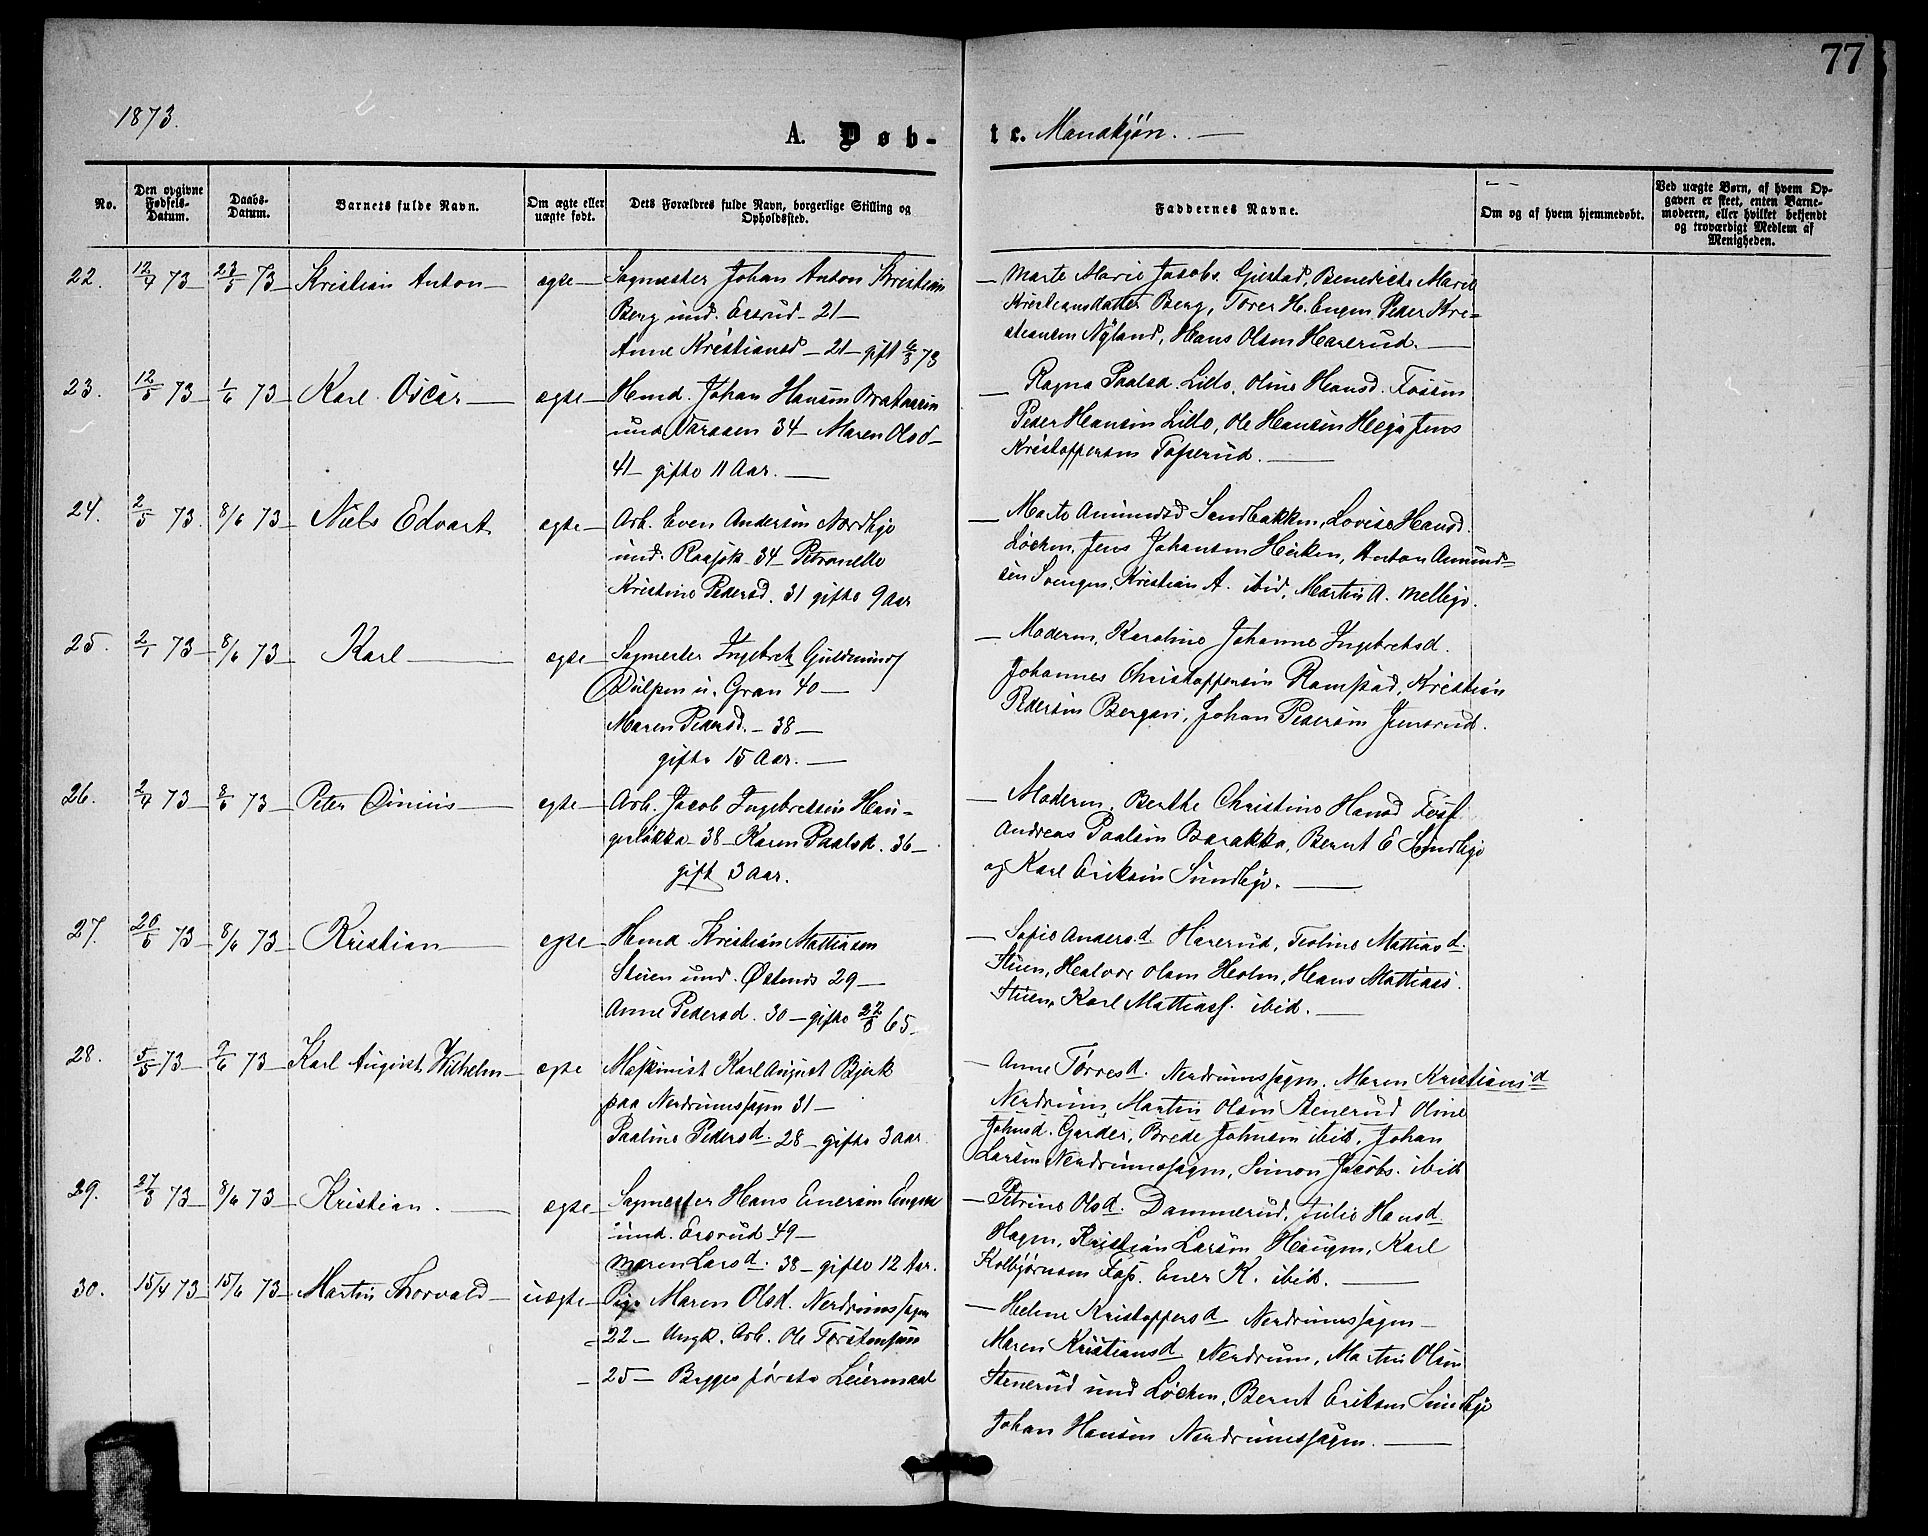 77
1873.
A. Døb-
te. Mandkjøn.
No.
Den opgivne Fødsels-Datum.
Daabs-Datum.
Barnets fulde Navn.
Om ægte eller uægte født.
Dets Forældres fulde Navn, borgerlige Stilling og Opholdssted.
Faddernes Navne.
Om og af hvem hjemmedøbt.
Ved uægte Børn, af hvem Opgaven er skeet, enten Barnemoderen, eller hvilket bekjendt og troværdigt Medlem af Menigheden.
22. 12/4 73 23/5 73 Kristian Anton ægte Sagmester Johan Anton Kristian
Berg und. Ersrud 21
Anne Kristiansd 21 gift 6/3 73
Marte Marie Jacobs. Gjestad, Benedicte Marie
Kristiansdatter Berg, Torer H. Engen Peder Kri-
stiansen Nyland, Hans Olsen Harerud.
23. 12/5 73 1/6 73 Karl Oscar ægte Hmd. Johan Hansen
und 34 Maren Olsd
41 gifte 11 Aar.
Ragna Paalsd. Lillo, Oline Hansd. Fossum
Peder Hansen Lillo, Ole Hansen Jens
Kristoffersen
24. 2/5 73 8/6 73 Niels Edvart ægte Arb. Even Andersen Nordbye
und. 34 Petronelle
Kristine Pedersd. 31 gifte 9 Aar
Marte Amundsd Sandbakken, Lovise Hansd.
Løchen, Jens Johansen Anton Amund-
sen Svengen, Kristian A. ibid, Martin A. Melbye.
25. 2/1 73 8/6 73 Karl ægte Sagmester Ingebret
u. Gran 40
Maren Pedersd. 38
gifte 15 Aar.
Moderen, Karoline Johanne Ingebretsd.
Johannes Christoffersen Ramstad, Kristian
Pedersen Bergan, Johan Pedersen
26. 2/4 73 8/6 73 Peter ægte Arb. Jacob Ingebretsen Hau-
gerløkka 38 Karen Paalsd. 36
gift 3 Aar.
Moderen, Berthe Christine Hansd
Andreas Paalsen Barakka, Bernt E Sundbye
og Karl Eriksen Sundbye.
27. 8/6 73 Kristian ægte Hmd Kristian Mattiasen
Stuen und. Østend 29
Anne Pedersd. 30 gifte 65
Sofie Andersd Harerud, Teoline Mattiasd.
Stuen, Halvor Olsen Holm, Hans Mattias.
Stuen, Karl Mattias. ibid.
28. 5/5 73 2/6 73 Karl August Wilhelm ægte Maskinist Karl August Bjerk
paa Nerdrumssagen 31
Pauline Pedersd. 28 gifte 3 Aar.
Anne Torresd. Nerdrumssagen, Maren Kristiansd
Nerdrum, Martin Olsen Stenerud Oline
Johnsd. Garder, Brede Johnsen ibid, Johan
Larsen Nerdrumssagen, Simon Jacobs. ibid
29. 27/3 73 8/6 73 Kristian. ægte Sagmester Hans Enersen Engen
und. Ersrud 49
Maren Larsd. 38 gifte 12 Aar.
Petrine Olsd. Dammerud, Julie Hansd
Hagen, Kristian Larsen Haugen, Karl
Kolbjørnsen Foss. Ener K. ibid.
30. 15/4 73 15/6 73 Martin Thorvald uægte Pige Maren Olsd. Nerdrumssagen
22 Ungk. Arb. Ole Torstensen
25 Begges første Leiermaal
Helene Kristoffersd Nerdrumssagen
Maren Kristiansd Nerdrum, Martin Olsen
Stenerud und Løchen, Bernt Eriksen Sundbye
Johan Hansen Nerdrumssagen.